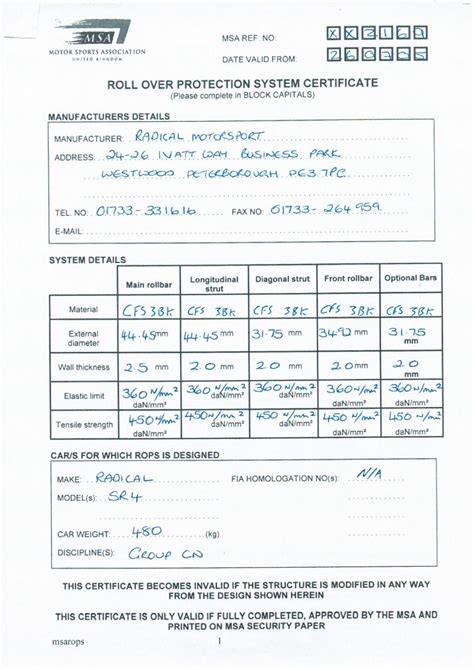 MSA
MOTOR SPORTS ASSOCIATION
UNITED KINGDOM
MSA REF. NO:
DATE VALID FROM:
ROLL OVER PROTECTION SYSTEM CERTIFICATE
(Please complete in BLOCK CAPITALS)
MANUFACTURERS DETAILS
MANUFACTURER: RADICAL MOTORSPORT
ADDRESS: 24-26 IVATT WAY BUSINESS PARK
WESTWOOD PETERBOROUGH PE3 7PG
TEL. NO: 01733-331616 FAX NO: 01733-264959
E-MAIL:
SYSTEM DETAILS
Main rollbar Longitudinal strut Diagonal strut Front rollbar Optional Bars
Material CFS 3BK CFS 3BK CFS 3BK CFS 3BK CFS 3BK
External diameter 44.45 mm 44.45 mm 31.75 mm 34.92 mm 31.75 mm
Wall thickness 2.5 mm 2.0 mm 2.0 mm 2.0 mm 2.0 mm
Elastic limit 360 N/mm² daN/mm² 360 N/mm² daN/mm² 360 N/mm² daN/mm² 360 N/mm² daN/mm² 360 N/mm² daN/mm²
Tensile strength 450 N/mm² daN/mm² 450 N/mm² daN/mm² 450 N/mm² daN/mm² 450 N/mm² daN/mm² 450 N/mm² daN/mm²
CAR/S FOR WHICH ROPS IS DESIGNED
MAKE: RADICAL FIA HOMOLOGATION NO(s): N/A
MODEL(s): SR4
CAR WEIGHT: 480 (kg)
DISCIPLINE(S): GROUP CN
THIS CERTIFICATE BECOMES INVALID IF THE STRUCTURE IS MODIFIED IN ANY WAY
FROM THE DESIGN SHOWN HEREIN
THIS CERTIFICATE IS ONLY VALID IF FULLY COMPLETED, APPROVED BY THE MSA AND
PRINTED ON MSA SECURITY PAPER
msarops 1